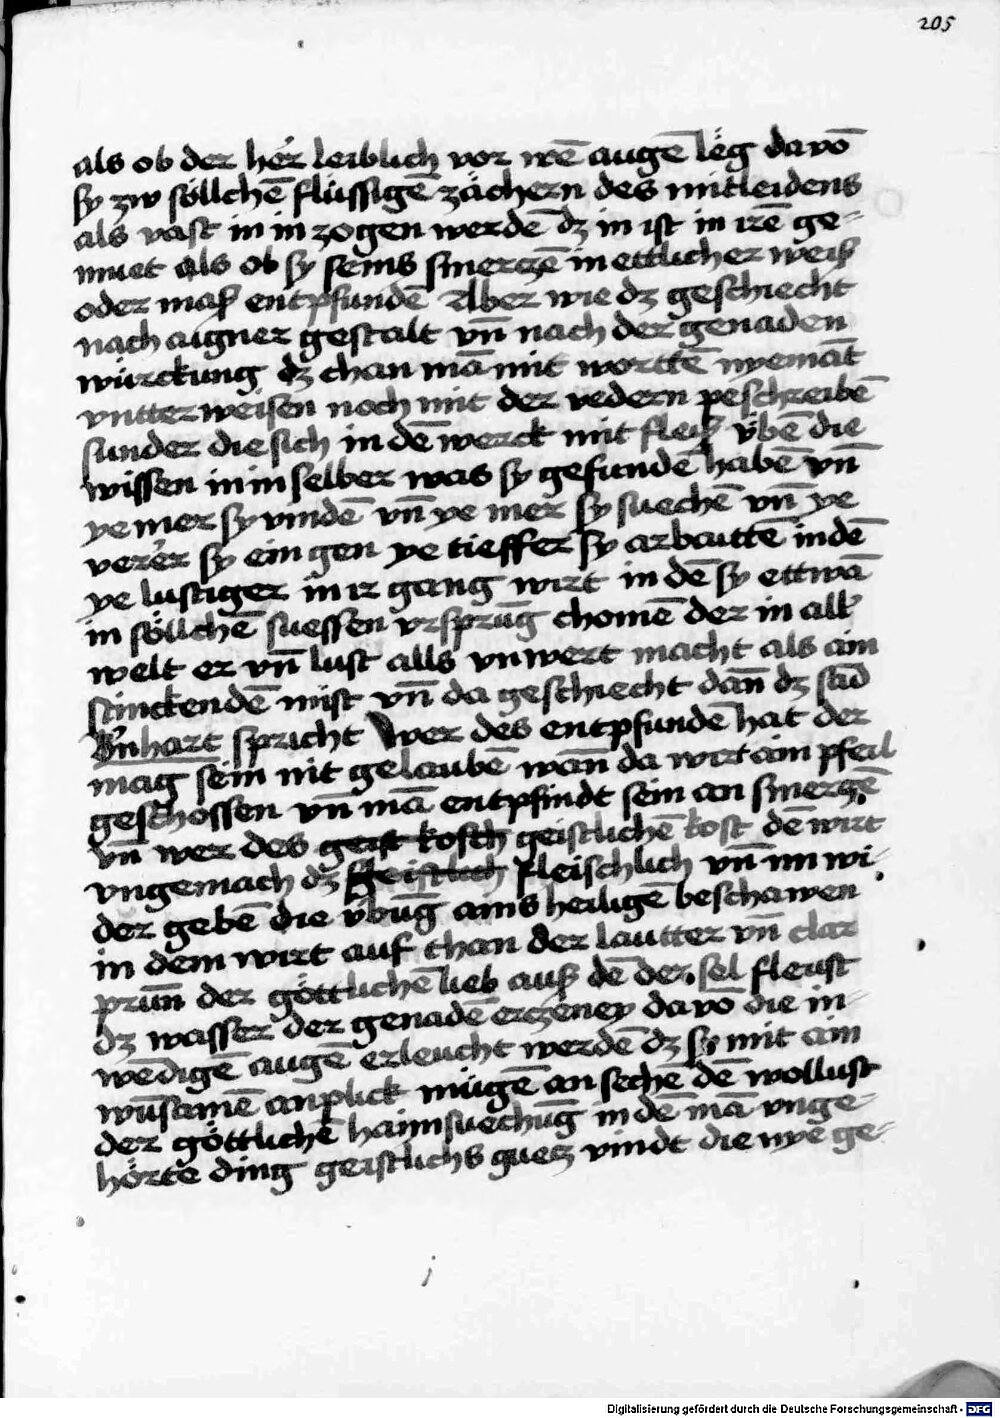 205
als ob der her̃ leiblich vor irē augē lëg da vō
sy zw söllchē flüssigē zächern des mitleidens
als vast in in zogen werdē dz in ist in irē ge-
muet als ob sy seins smerczē in ettlicher weiß
oder maß entpfundē Aber wie dz geschiecht
nach aigner gestalt vn̄ nach der genaden
würckung dz chan mā mit worttē nyemāt
vntterweisen noch mit der vedern peschreibē
sunder die sich in dē werck mit fleiß v̈bē die
wissen in in selber was sy gefundē habē vn̄
ye mer sy vindē vn̄ ye mer sy suechē vn̄ ye
verer̃ sy ein gen ye tieffer sy arbauttē in dē
ye lustiger in ir gang wirt in dē sy ettwā
in söllchē suessen vrsprūg chomē der in all̃
welt er vn̄ lust alls vnwert macht als ain
stinckendē mist vn̄ da geschiecht dan̄ dz sād
Bn̄hart spricht Wer des entpfundē hat der
mag sein nit gelaubē wan̄ da wirt ain pfeil
geschossen vn̄ mā entpfindt sein an smerczē
vn̄ wer des geist kosth geistlichē kost dē wirt
vngemach dz geistlich fleischlich vn̄ im wi-
der gebē die v̈būg ains heiligē beschawen
in dem wirt auf than der lautter vn̄ clar
prun̄ der göttlichē lieb auß dē der sel fleust
dz wasser der genadē erczeney da vō die in-
wēdigē augē erleucht werdē dz sy mit aim
wūsamē anplick mügē an sechē dē wollust
der göttlichē haimsuechūg in dē mā vnge-
hörte ding geistlichs guetz vindt die nyē ge-
Digitalisierung gefördert durch die Deutsche Forschungsgemeinschaft - DFG